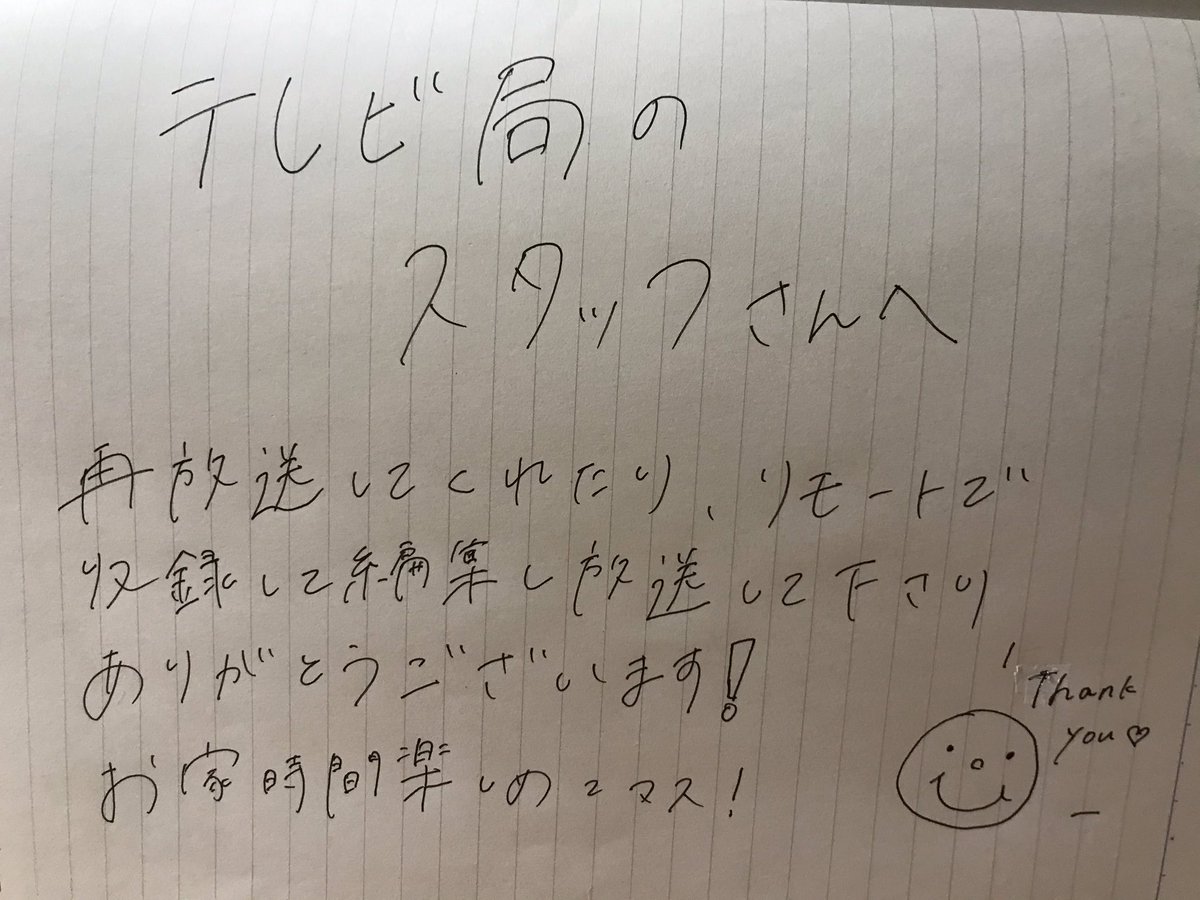 テレビ局の
スタッフさんへ
再放送してくれたり、リモートで
収録して編集し放送して下さり
ありがとうございます!
お家時間楽しめてマス!
Thank
you♡